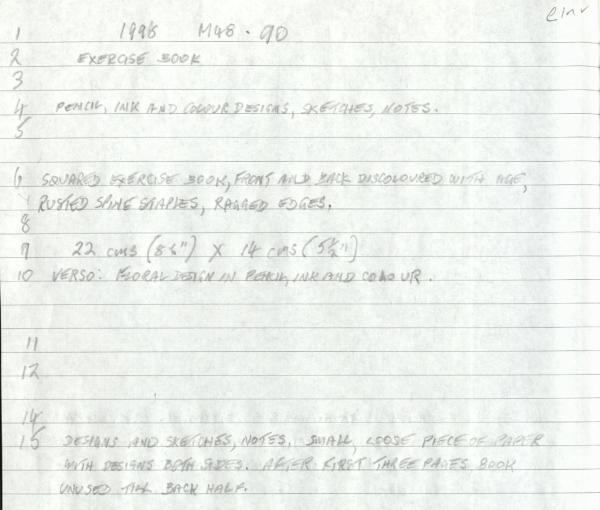 einv
1 1998 M48.90
2 EXERCISE BOOK
3
4 PENCIL, INK AND COLOUR DESIGNS, SKETCHES, NOTES.
5
6 SQUARED EXERCISE BOOK, FRONT AND BACK DISCOLOURED WITH AGE,
RUSTED SPINE STAPLES, RAGGED EDGES.
8
9 22 cms ( ) X 14 cms (5½")
10 VERSO: FLORAL DESIGN IN PENCIL, INK AND COLOUR.
11
12
14
15 DESIGNS AND SKETCHES, NOTES. SMALL, LOOSE PIECE OF PAPER
WITH DESIGNS BOTH SIDES. AFTER FIRST THREE PAGES BOOK
UNUSED TILL BACK HALF.